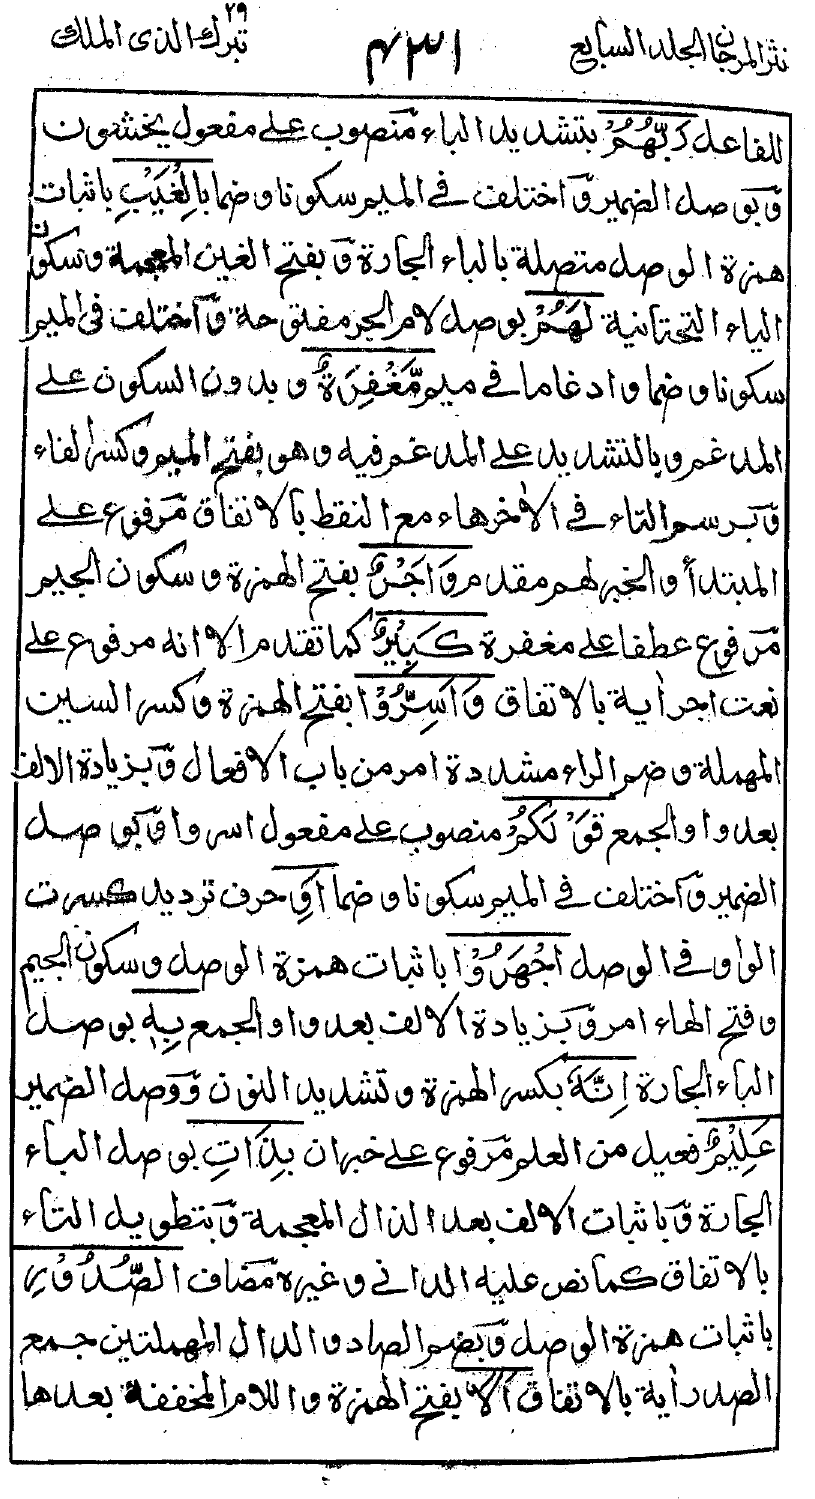 نثر المرجان الجلد السابع
٤٣١
تبرك الذى الملك ٢٩
للفاعل رَبَّهُمْ بتشديد الباء منصوب على مفعول يخشون
وبوصل الضمير واختلف في الميم سكونا وضما بِالْغَيْبِ باثبات
همزة الوصل متصلة بالباء الجارة وبفتح الغين المعجمة وسكون
الياء التحتانية لَهُمْ بوصل لام الجر مفتوحة واختلف فى الميم
سكونا وضما وادغاما في ميم مَّغْفِرَةٌ وبدون السكون على
المدغم وبالتشديد على المدغم فيه وهو بفتح الميم وكسر الفاء
وبرسم التاء في الاخر هاء مع النقط بالاتفاق مرفوع على
المبتدأ والخبر لهم مقدم وَاَجْرٌ بفتح الهمزة وسكون الجيم
مرفوع عطفا على مغفرة كَبِيْرٌ كما تقدم الا انه مرفوع على
نعت اجر اية بالاتفاق وَاَسِرُّوْا بفتح الهمزة وكسر السين
المهملة وضم الراء مشددة امر من باب الافعال وبزيادة الالف
بعد واو الجمع قَوْلَكُمْ منصوب على مفعول اسروا وبوصل
الضمير واختلف في الميم سكونا وضما اَوِ حرف ترديد كسرت
الواو في الوصل اجْهَرُوْا باثبات همزة الوصل وسكون الجيم
وفتح الهاء امر وبزيادة الالف بعد واو الجمع بِهٖ بوصل
الباء الجارة اِنَّهٗ بكسر الهمزة وتشديد النون ووصل الضمير
عَلِيْمٌ فعيل من العلم مرفوع على خبر ان بِذَاتِ بوصل الباء
الجارة وباثبات الالف بعد الذال المعجمة وبتطويل التاء
بالاتفاق كما نص عليه الدانى وغيره مضاف الصُّدُوْرِ
باثبات همزة الوصل وبضم الصاد والدال المهملتين جمع
الصدر اية بالاتفاق اَلَا بفتح الهمزة واللام المخففة بعدها